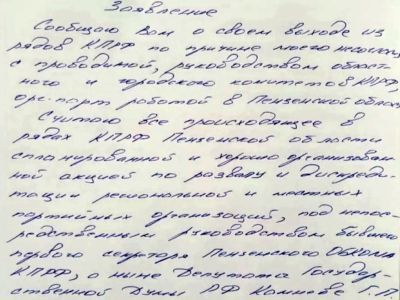 Заявление
Сообщаю Вам о своем выходе из
рядов КПРФ по причине моего несоглас
с проводимой, руководством област-
ного и городского комитетов КПРФ,
орг-парт работой в Пензенской област
Считаю все происходящее в
рядах КПРФ Пензенской области
спланированной и хорошо организован-
ной акцией по развалу и дискреди-
тации региональной и местных
партийных организаций, под непос-
редственным руководством бывшего
первого секретаря Пензенского ОБКОМа
КПРФ, а ныне Депутата Государ-
ственной Думы РФ Камнева Г.П.